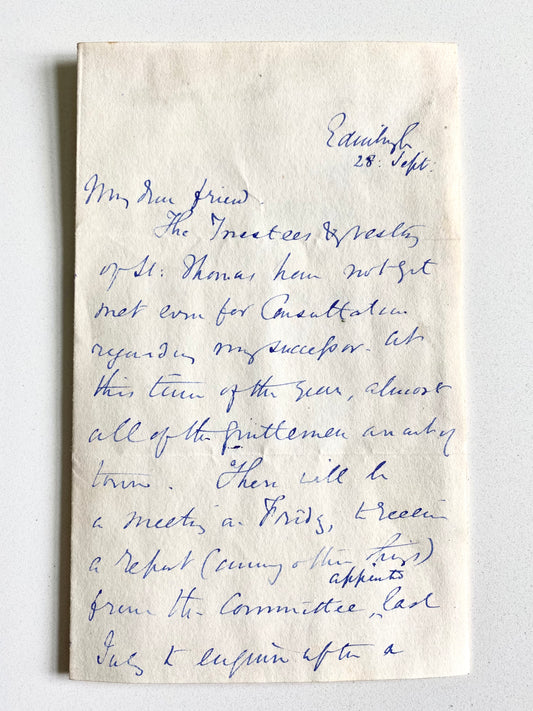 Edinburgh
28: Sept:
My dear friend.
The Trustees & vestry
of St: Thomas have not yet
met even for Consultation
regarding my successor. At
this time of the year, almost
all of the gentlemen are out of
town. There will be
a meeting on Friday, to receive
a report (among other things)
appointed
from the Committee, last
July to enquire after a